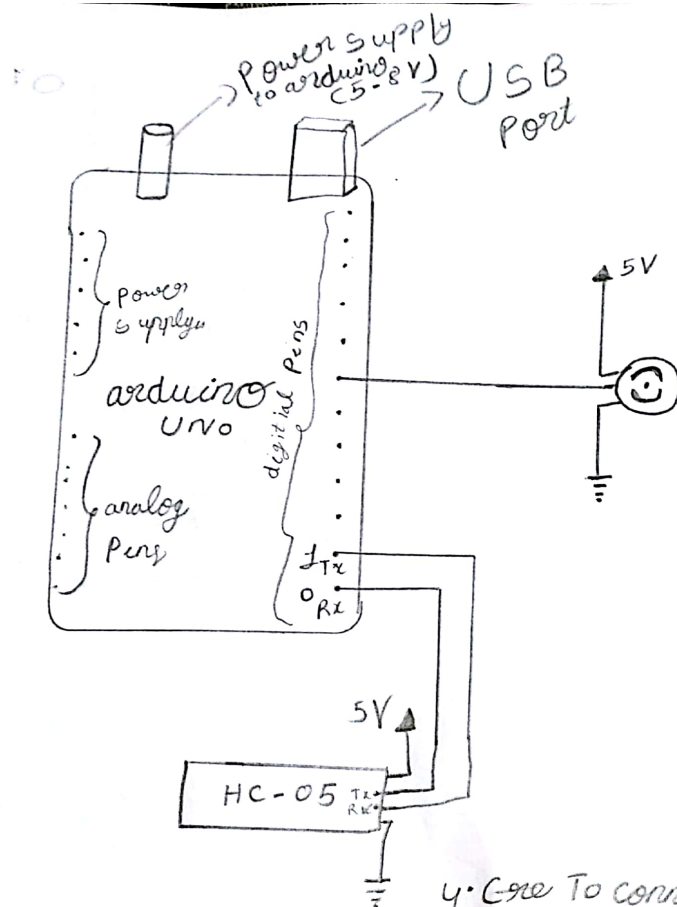 Power supply
to arduino
(5-8V)
USB
Port
Power
supply
5V
arduino
UNO
digitial Pins
analog
Pins
1 Tx
0 Rx
5V
HC-05 Tx
RX
To